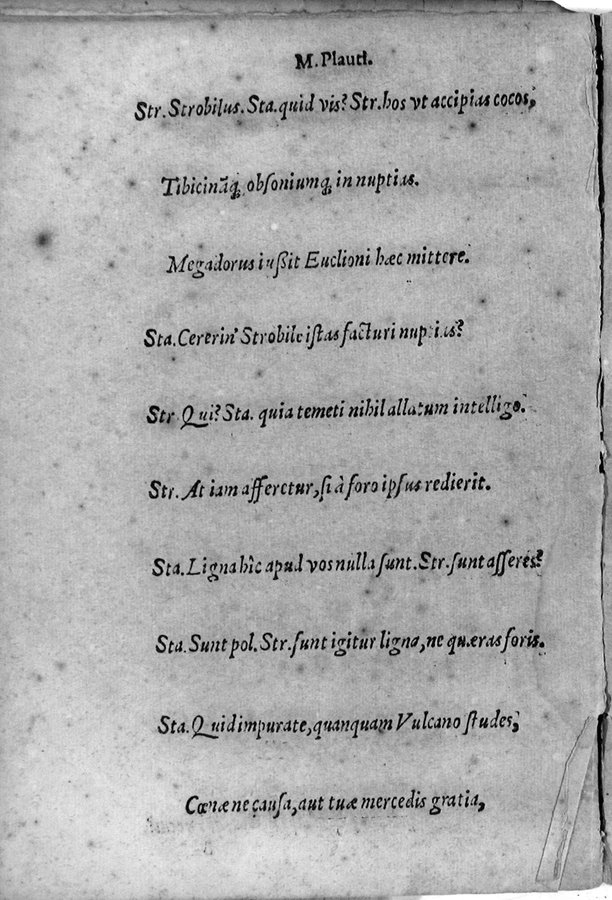 M. Plauti.
Str. Strobilus. Sta. quid vis? Str. hos vt accipias cocos,
Tibicinãq́; obſoniumq́; in nuptias.
Megadorus iußit Euclioni hæc mittere.
Sta. Cererin' Strobile iſtas facturi nuptias?
Str. Qui? Sta. quia temeti nihil allatum intelligo.
Str. At iam afferetur, ſi à foro ipſus redierit.
Sta. Ligna hîc apud vos nulla ſunt. Str. ſunt aſſeres?
Sta. Sunt pol. Str. ſunt igitur ligna, ne quæras foris.
Sta. Quid impurate, quanquam Vulcano ſtudes,
Cœnæ ne cauſa, aut tuæ mercedis gratia,